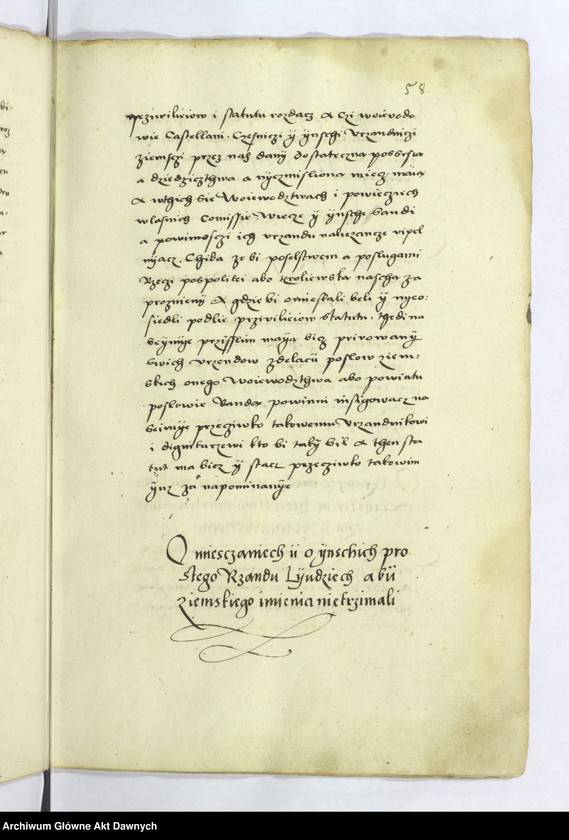 58
przivileiow i statutu rozdacz & Czi woiewodo
wie Castellani. Czesniczi ÿ ÿnschi Vrzandniczi
ziemsczi przez nas dany dostateczna possesia
a dziedzicthwa a niczmisliona miecz maia
& wthich sie Woiewodztwach i powieciech
wlasnich Comissie Wiecze ÿ ÿnsche sandi
a powinnosczi ich vrzandu nalezancze vipel
niacz. Chiba ze bi poselstwem a poslugami
Rzeczi pospolitei abo Kroliewska nascha za
proznieni & gdzie bi omieskali beli ÿ nieo:
siedli podlie przivileiow statutu. thedi na
seÿmie przisslim maÿa bicz privowany
swich vrzendow zdelacii poslow ziem:
skich onego Woiewodzthwa abo powiatu
poslowie Banda powinni instigowacz na
seimie przeciwko takowemu Vrzandnikowi
i dignitarzewi kto bi taky bil & then sta
tut ma bicz ÿ stacz przeciwko takowim
ÿuz za napominanÿe
O miesczaniech ii o ÿnschich pro
stego Rzandu Lÿudziech abÿ
ziemskiego imienia nietrzimali
Archiwum Główne Akt Dawnych